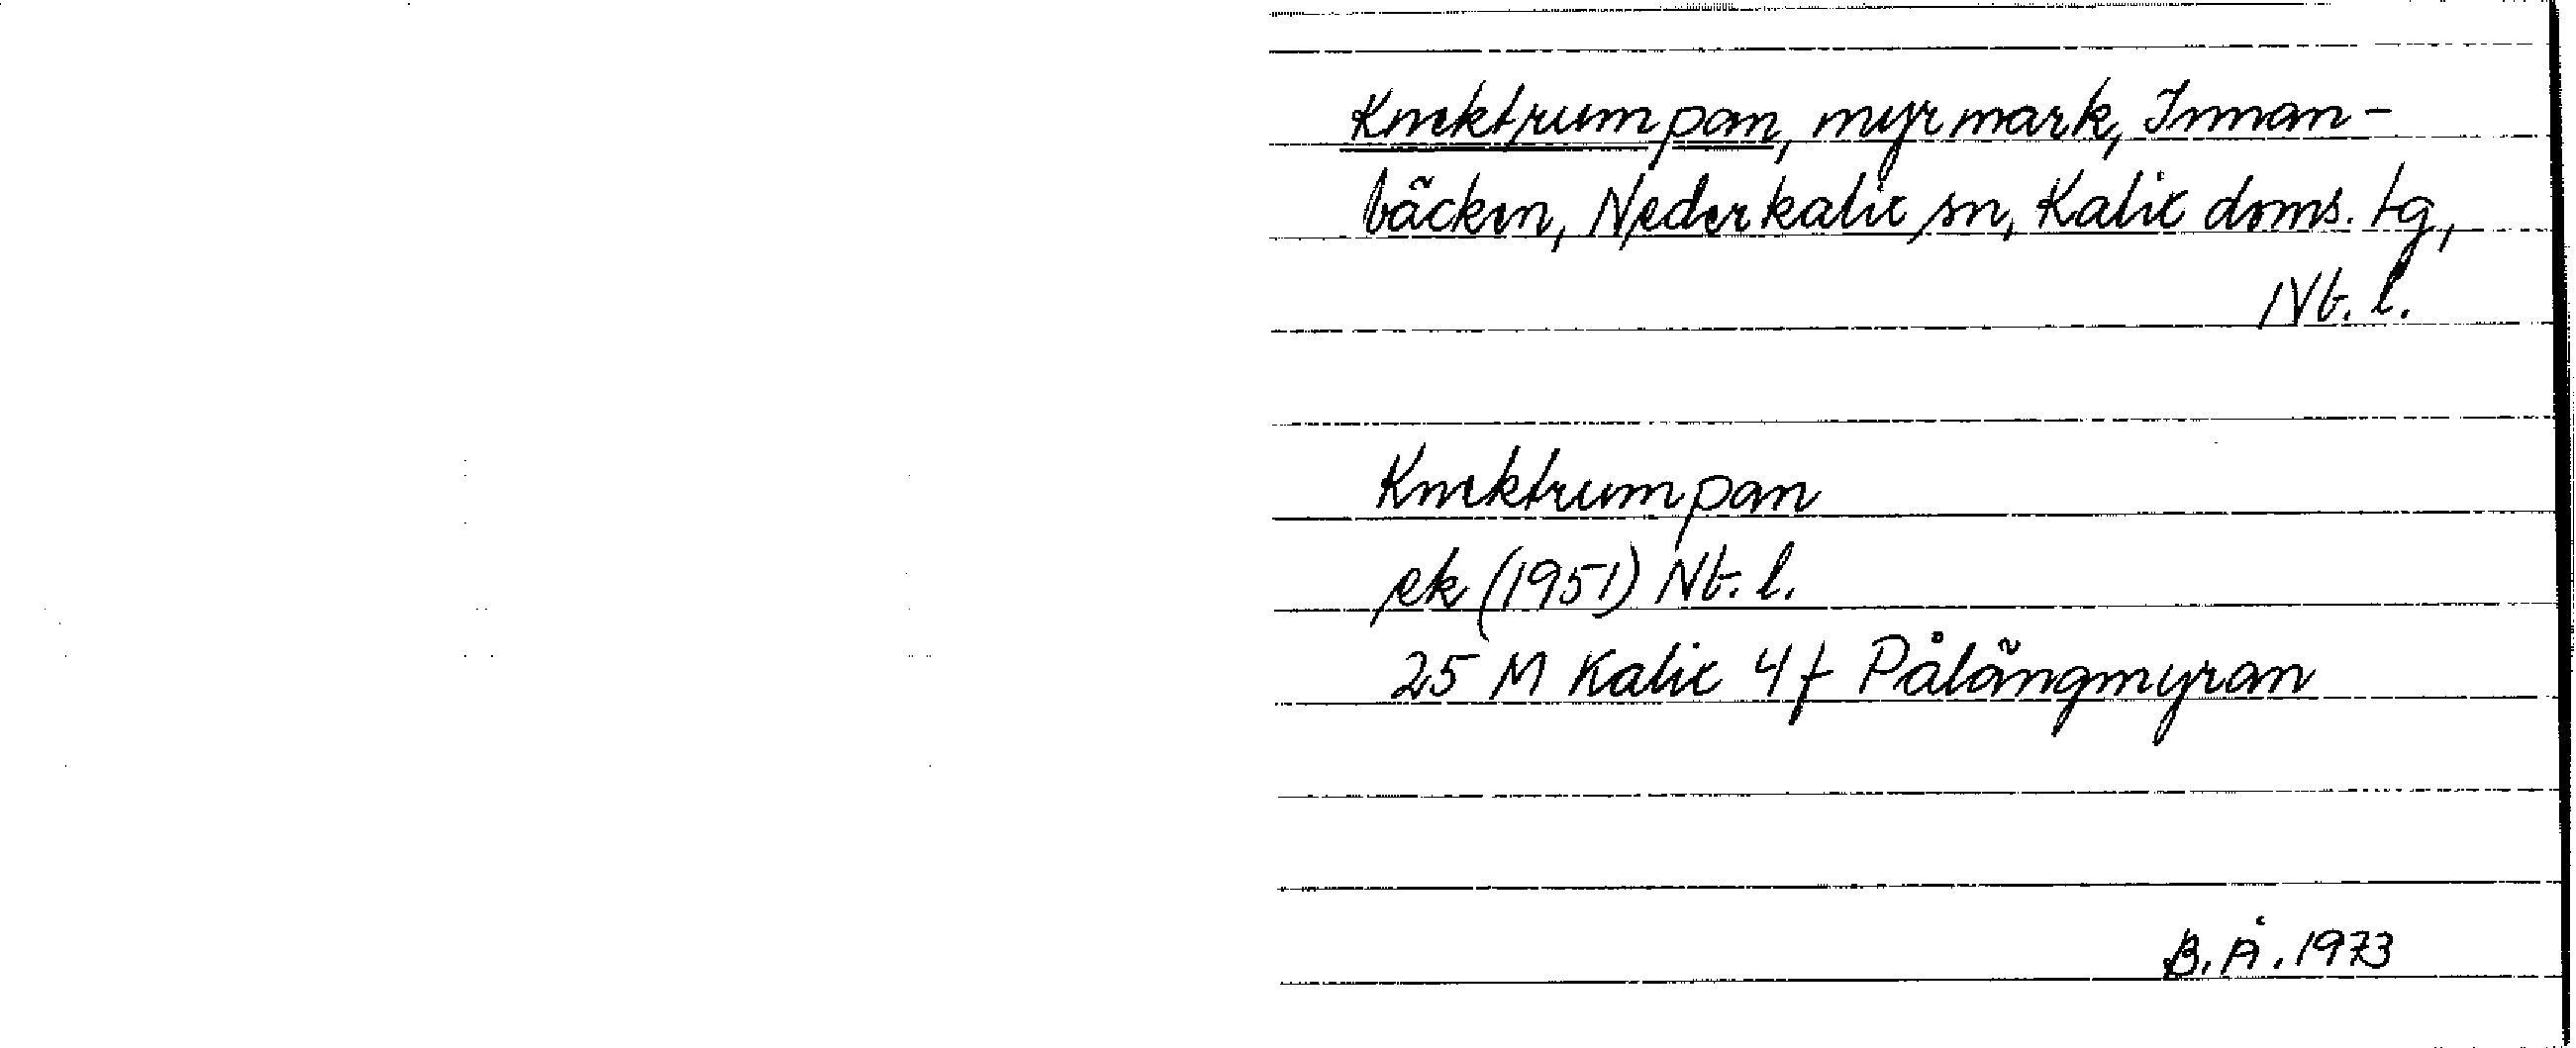 Knektrumpan, myrmark, Innan-
bäcken, Nederkalix sn, Kalix doms. tg,
Nb. l.
Knektrumpan
ek (1951) Nb. l.
25 M Kalix 4f Pålängmyran
B.Å. 1973